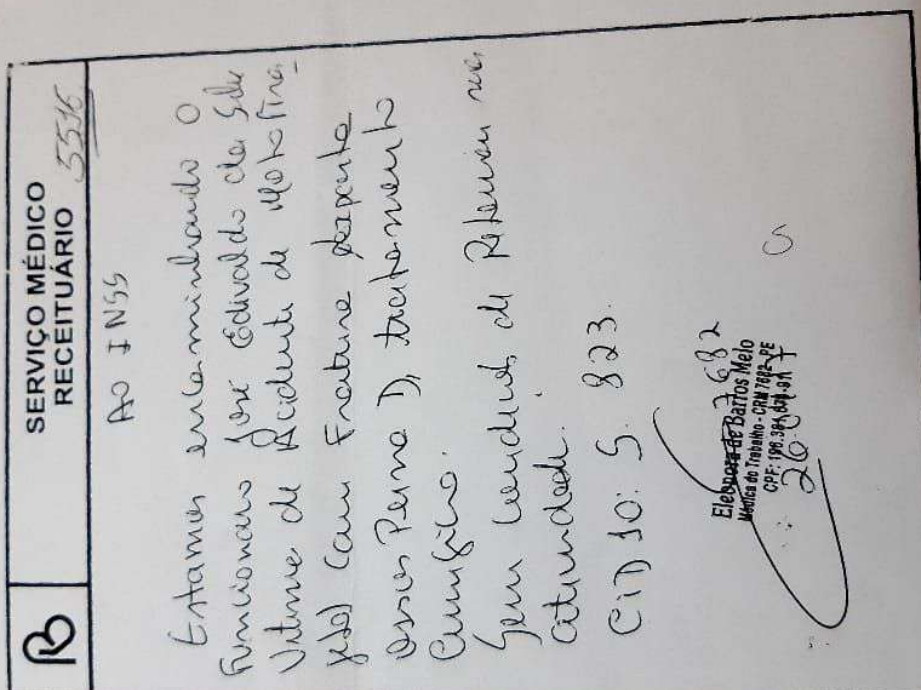 SERVIÇO MÉDICO
RECEITUÁRIO 5516
AO INSS
Estamos encaminhando o
Funcionario José Edivaldo da Silva
Vitima de Acidente de Moto
com Fratura
ossos Perna D, tratamento
Cirurgico.
Sem condições de Retornar
atividade.
CID 10: S. 823.
7682
Eleonora de Barros Melo
Médica do Trabalho - CRM 7682-PE
CPF: 196.